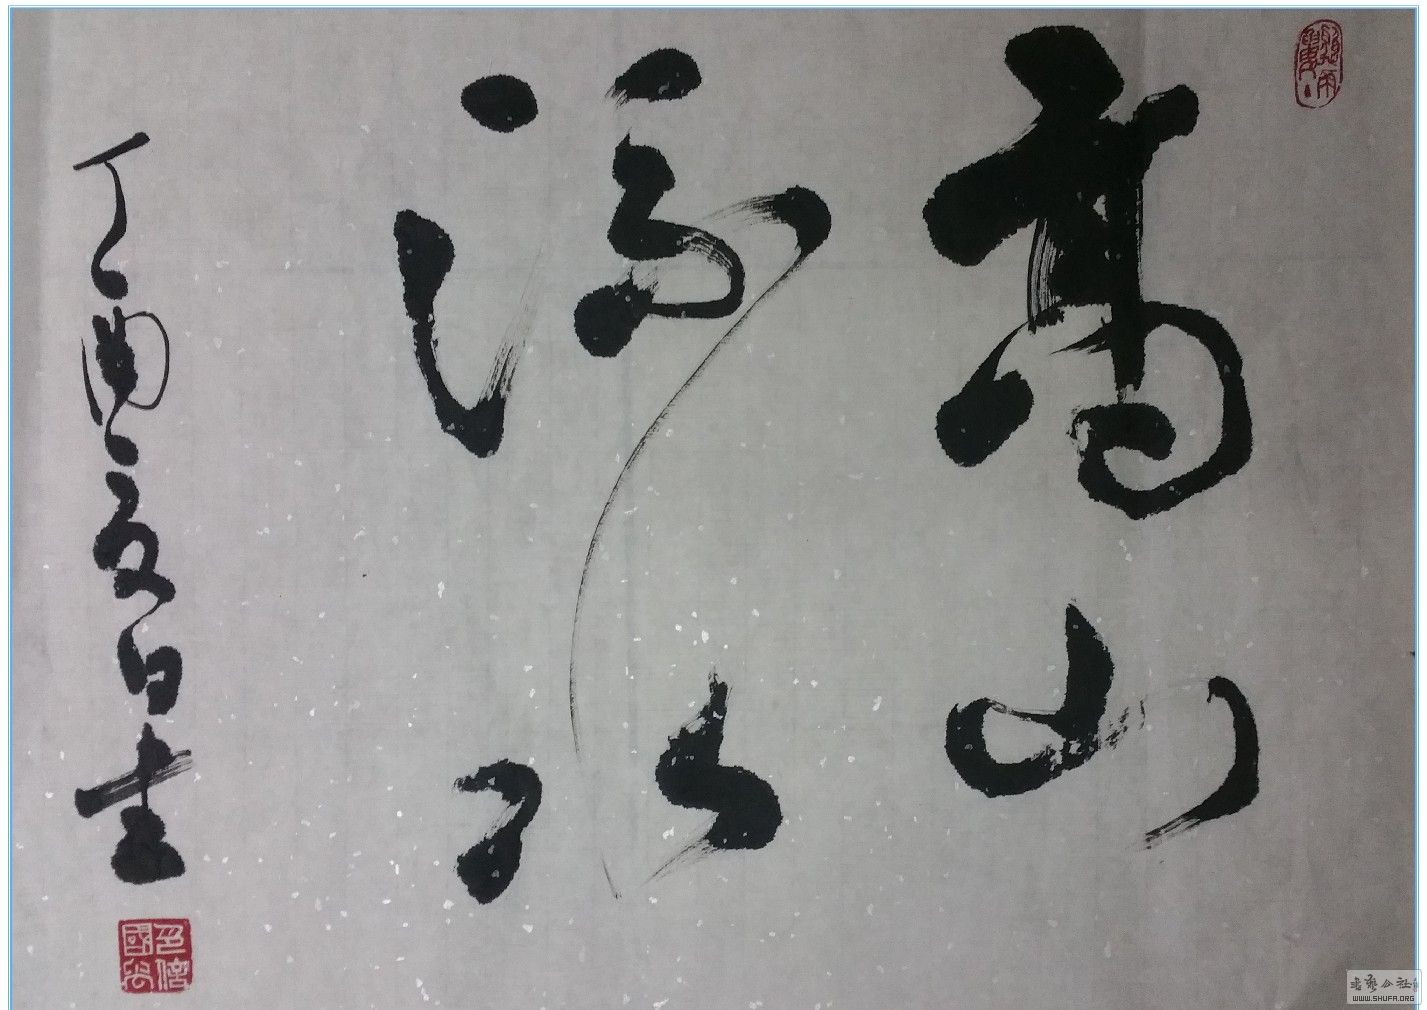 高山
流水
丁酉夏日书
书艺公社
WWW.SHUFA.ORG